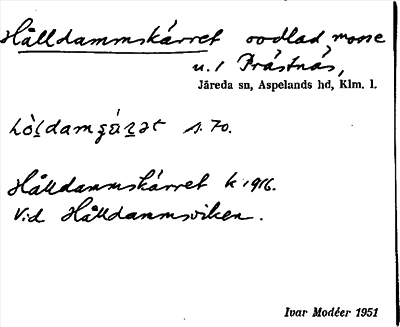 Hålldammskärret oodlad mosse
u. / Prästnäs,
Järeda sn, Aspelands hd, Klm. l.
s. 70.
Hålldammskärret k 1916.
Vid Hålldammsviken.
Ivar Modéer 1951